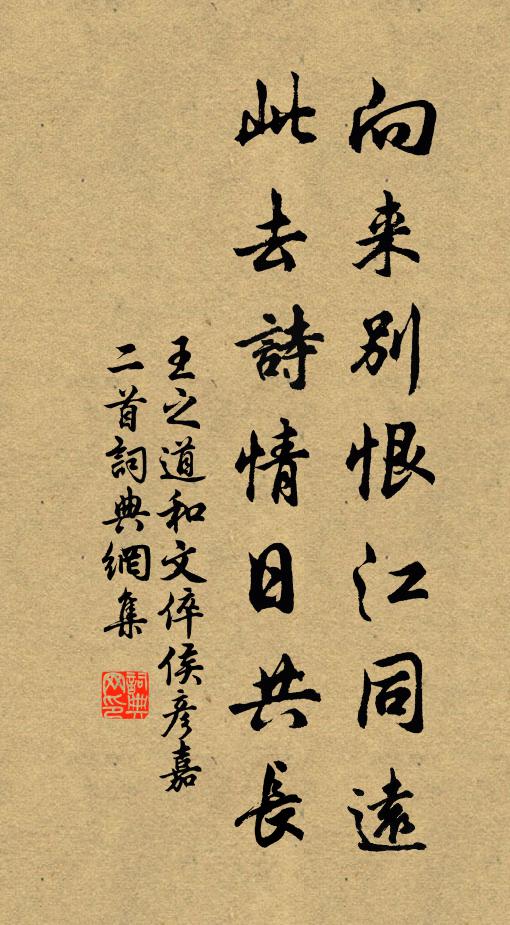 向来别恨江同遠
此去詩情日共長
王之道和文倅侯彦嘉
二首詞典網集
詞典
网印